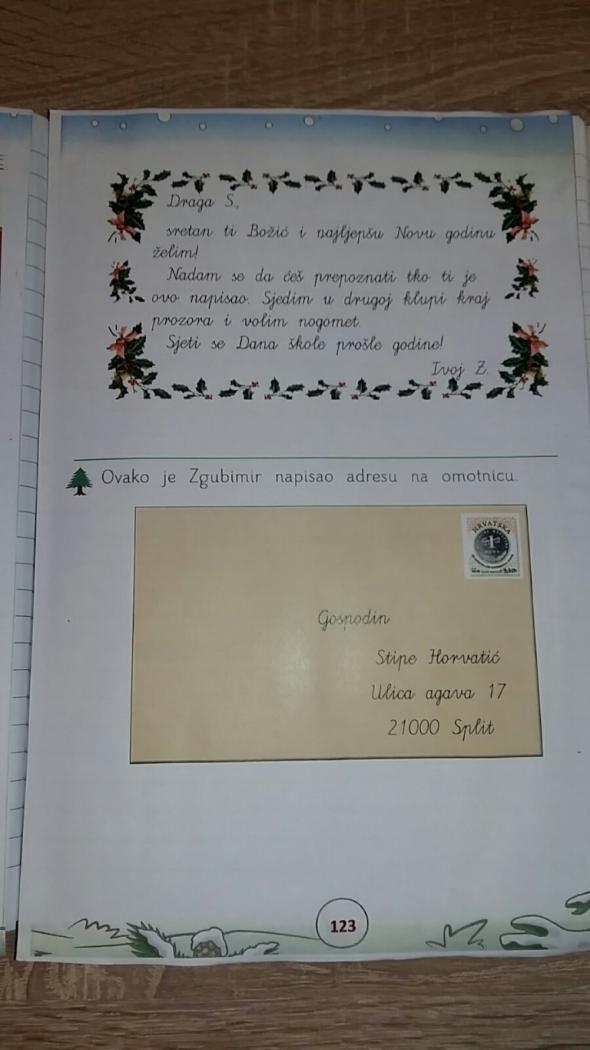 Draga S.,
sretan ti Božić i najljepšu Novu godinu
želim!
Nadam se da ćeš prepoznati tko ti je
ovo napisao. Sjedim u drugoj klupi kraj
prozora i volim nogomet.
Sjeti se Dana škole prošle godine!
Tvoj Z.
Ovako je Zgubimir napisao adresu na omotnicu.
HRVATSKA
1
Gospodin
Stipe Horvatić
Ulica agava 17
21000 Split
123